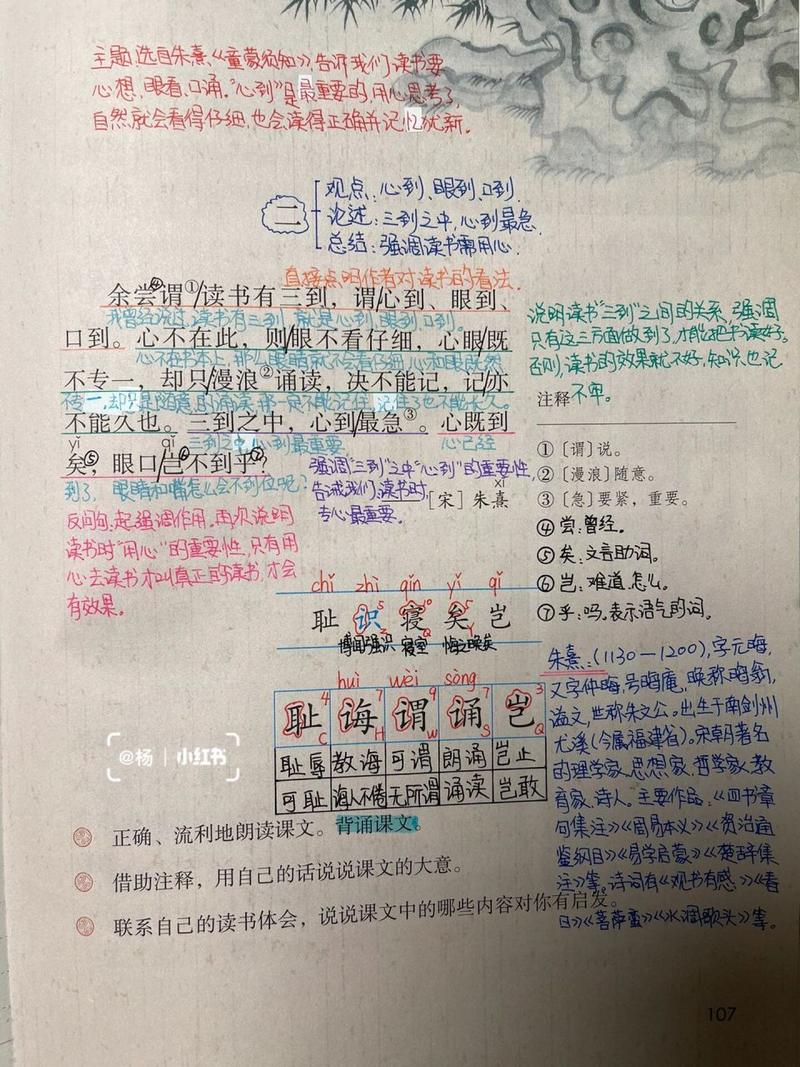 主题:选自朱熹《童蒙须知》,告诉我们读书要
心想、眼看、口诵。“心到”是最重要的,用心思考了,
自然就会看得仔细,也会读得正确并记忆犹新。
二
观点:心到、眼到、口到.
论述:三到之中,心到最急.
总结:强调读书需用心.
直接点明作者对读书的看法.
余尝④谓①/读书有三到,谓/心到、眼到、
我曾经说过,读书有三到,就是心到、眼到、口到。
口到。心不在此,则/眼不看仔细,心眼/既
心不在书本上,那么眼睛就不会看仔细,心和眼既然
不专一,却只/漫浪②诵读,决不能记,记/亦
不专一,却只是随意的诵读,那一定不能记住,记住了也不能长久。
不能久也。三到之中,心到/最急③。心既到
三到之中,心到最重要,
心已经
yǐ
qǐ
矣⑤,眼口/岂⑥不到乎⑦?
到了,眼睛和嘴怎么会不到位呢?
强调“三到”之中“心到”的重要性,
告诫我们,读书时,
专心最重要。
xī
[宋]朱熹
反问句,起强调作用。再次说明
读书时“用心”的重要性,只有用
心去读书才叫真正的读书,才会
有效果。
说明读书“三到”之间的关系,强调
只有这三方面做到了,才能把书读好。
否则,读书的效果就不好,知识也记
不牢。
注释
①〔谓〕说。
②〔漫浪〕随意。
③〔急〕要紧,重要。
④尝:曾经。
⑤矣:文言助词。
⑥岂:难道、怎么。
⑦乎:吗。表示语气的词。
chǐ zhì qǐn yǐ qǐ
耻 识 寝 矣 岂
博闻强识 寝室 悔之晚矣
huì wèi sòng
耻 诲 谓 诵 岂
耻辱 教诲 可谓 朗诵 岂止
可耻 诲人不倦 无所谓 诵读 岂敢
朱熹:(1130—1200),字元晦,
又字仲晦,号晦庵,晚称晦翁,
谥文,世称朱文公。出生于南剑州
尤溪(今属福建省)。宋朝著名
的理学家、思想家、哲学家、教
育家、诗人。主要作品:《四书章
句集注》《周易本义》《资治通
鉴纲目》《易学启蒙》《楚辞集
注》等。诗词有《观书有感》《春
日》《菩萨蛮》《水调歌头》等。
@杨 | 小红书
正确、流利地朗读课文。背诵课文。
借助注释,用自己的话说说课文的大意。
联系自己的读书体会,说说课文中的哪些内容对你有启发。
107